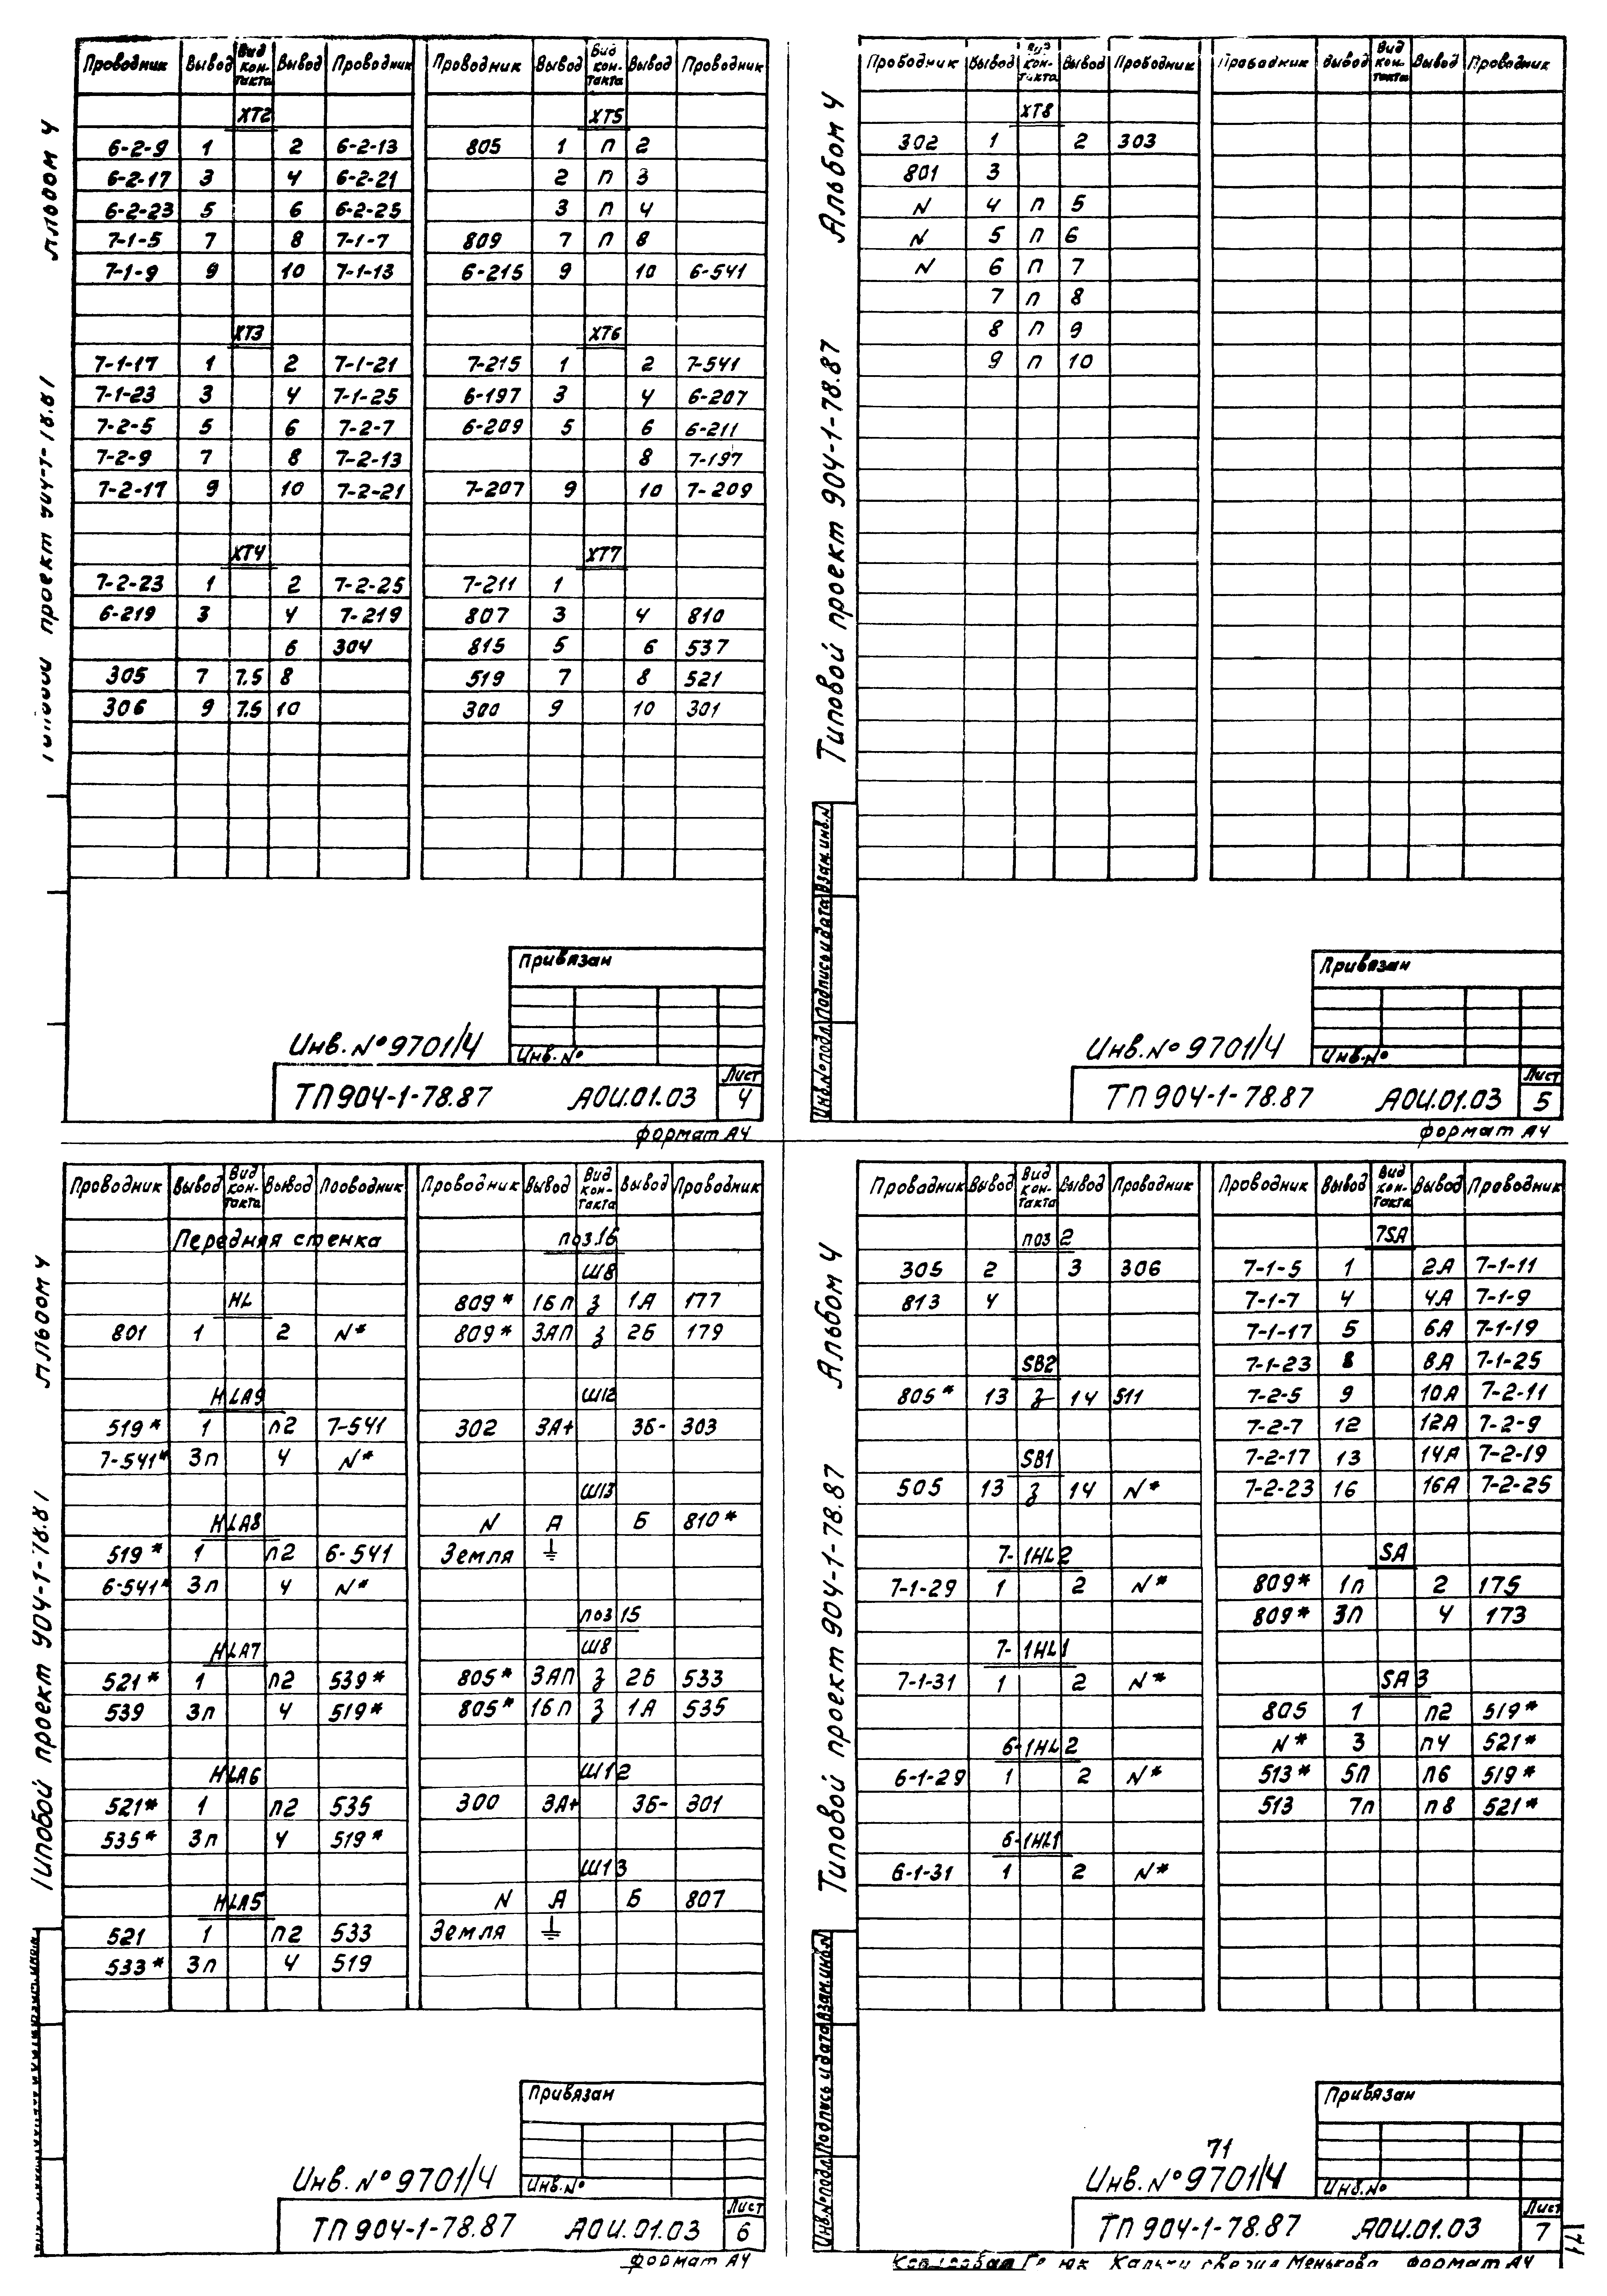 Альбом 4
проект 904-1-78.87
Проводник Вывод Вид кон-такта Вывод Проводник Проводник Вывод Вид кон-такта Вывод Проводник
XT2 XT5
6-2-9 1 2 6-2-13 805 1 п 2
6-2-17 3 4 6-2-21 2 п 3
6-2-23 5 6 6-2-25 3 п 4
7-1-5 7 8 7-1-7 809 7 п 8
7-1-9 9 10 7-1-13 6-215 9 10 6-541
XT3 XT6
7-1-17 1 2 7-1-21 7-215 1 2 7-541
7-1-23 3 4 7-1-25 6-197 3 4 6-207
7-2-5 5 6 7-2-7 6-209 5 6 6-211
7-2-9 7 8 7-2-13 8 7-197
7-2-17 9 10 7-2-21 7-207 9 10 7-209
XT4 XT7
7-2-23 1 2 7-2-25 7-211 1
6-219 3 4 7-219 807 3 4 810
6 304 815 5 6 537
305 7 7.5 8 519 7 8 521
306 9 7.5 10 300 9 10 301
Привязан
Инв.№ 9701/4
Инв.№
ТП 904-1-78.87 АОИ.01.03 Лист 4
формат А4
Альбом 4
Типовой проект 904-1-78.87
Инв.№ подл. Подпись и дата Взам.инв.№
Проводник Вывод Вид кон-такта Вывод Проводник Проводник Вывод Вид кон-такта Вывод Проводник
XT8
302 1 2 303
801 3
N 4 п 5
N 5 п 6
N 6 п 7
7 п 8
8 п 9
9 п 10
Привязан
Инв.№ 9701/4
Инв.№
ТП 904-1-78.87 АОИ.01.03 Лист 5
формат А4
Альбом 4
Типовой проект 904-1-78.87
Проводник Вывод Вид кон-такта Вывод Проводник Проводник Вывод Вид кон-такта Вывод Проводник
Передняя стенка поз.16
Ш8
HL 809* 1Б п з 1А 177
801 1 2 N* 809* 3Ап з 2Б 179
HLA9 Ш12
519* 1 п2 7-541 302 3А+ 3Б- 303
7-541* 3п 4 N*
Ш13
HLA8 N А Б 810*
519* 1 п2 6-541 Земля ⏚
6-541* 3п 4 N*
поз 15
HLA7 Ш8
521* 1 п2 539* 805* 3Ап з 2Б 533
539 3п 4 519* 805* 1Б п з 1А 535
HLA6 Ш12
521* 1 п2 535 300 3А+ 3Б- 301
535* 3п 4 519*
Ш13
HLA5 N А Б 807
521 1 п2 533 Земля ⏚
533* 3п 4 519
Привязан
Инв.№ 9701/4
Инв.№
ТП 904-1-78.87 АОИ.01.03 Лист 6
формат А4
Альбом 4
Типовой проект 904-1-78.87
Инв.№ подл. Подпись и дата Взам.инв.№
Проводник Вывод Вид кон-такта Вывод Проводник Проводник Вывод Вид кон-такта Вывод Проводник
поз 2 7SA
305 2 3 306 7-1-5 1 2А 7-1-11
813 4 7-1-7 4 4А 7-1-9
7-1-17 5 6А 7-1-19
SB2 7-1-23 8 8А 7-1-25
805* 13 з 14 511 7-2-5 9 10А 7-2-11
7-2-7 12 12А 7-2-9
SB1 7-2-17 13 14А 7-2-19
505 13 з 14 N* 7-2-23 16 16А 7-2-25
7-1HL2 SA
7-1-29 1 2 N* 809* 1п 2 175
809* 3п 4 173
7-1HL1
7-1-31 1 2 N* SA3
805 1 п2 519*
6-1HL2 N* 3 п4 521*
6-1-29 1 2 N* 513* 5п п6 519*
513 7п п8 521*
6-1HL1
6-1-31 1 2 N*
Привязан
71
Инв.№ 9701/4
Инв.№
ТП 904-1-78.87 АОИ.01.03 Лист 7
Менькова формат А4
71